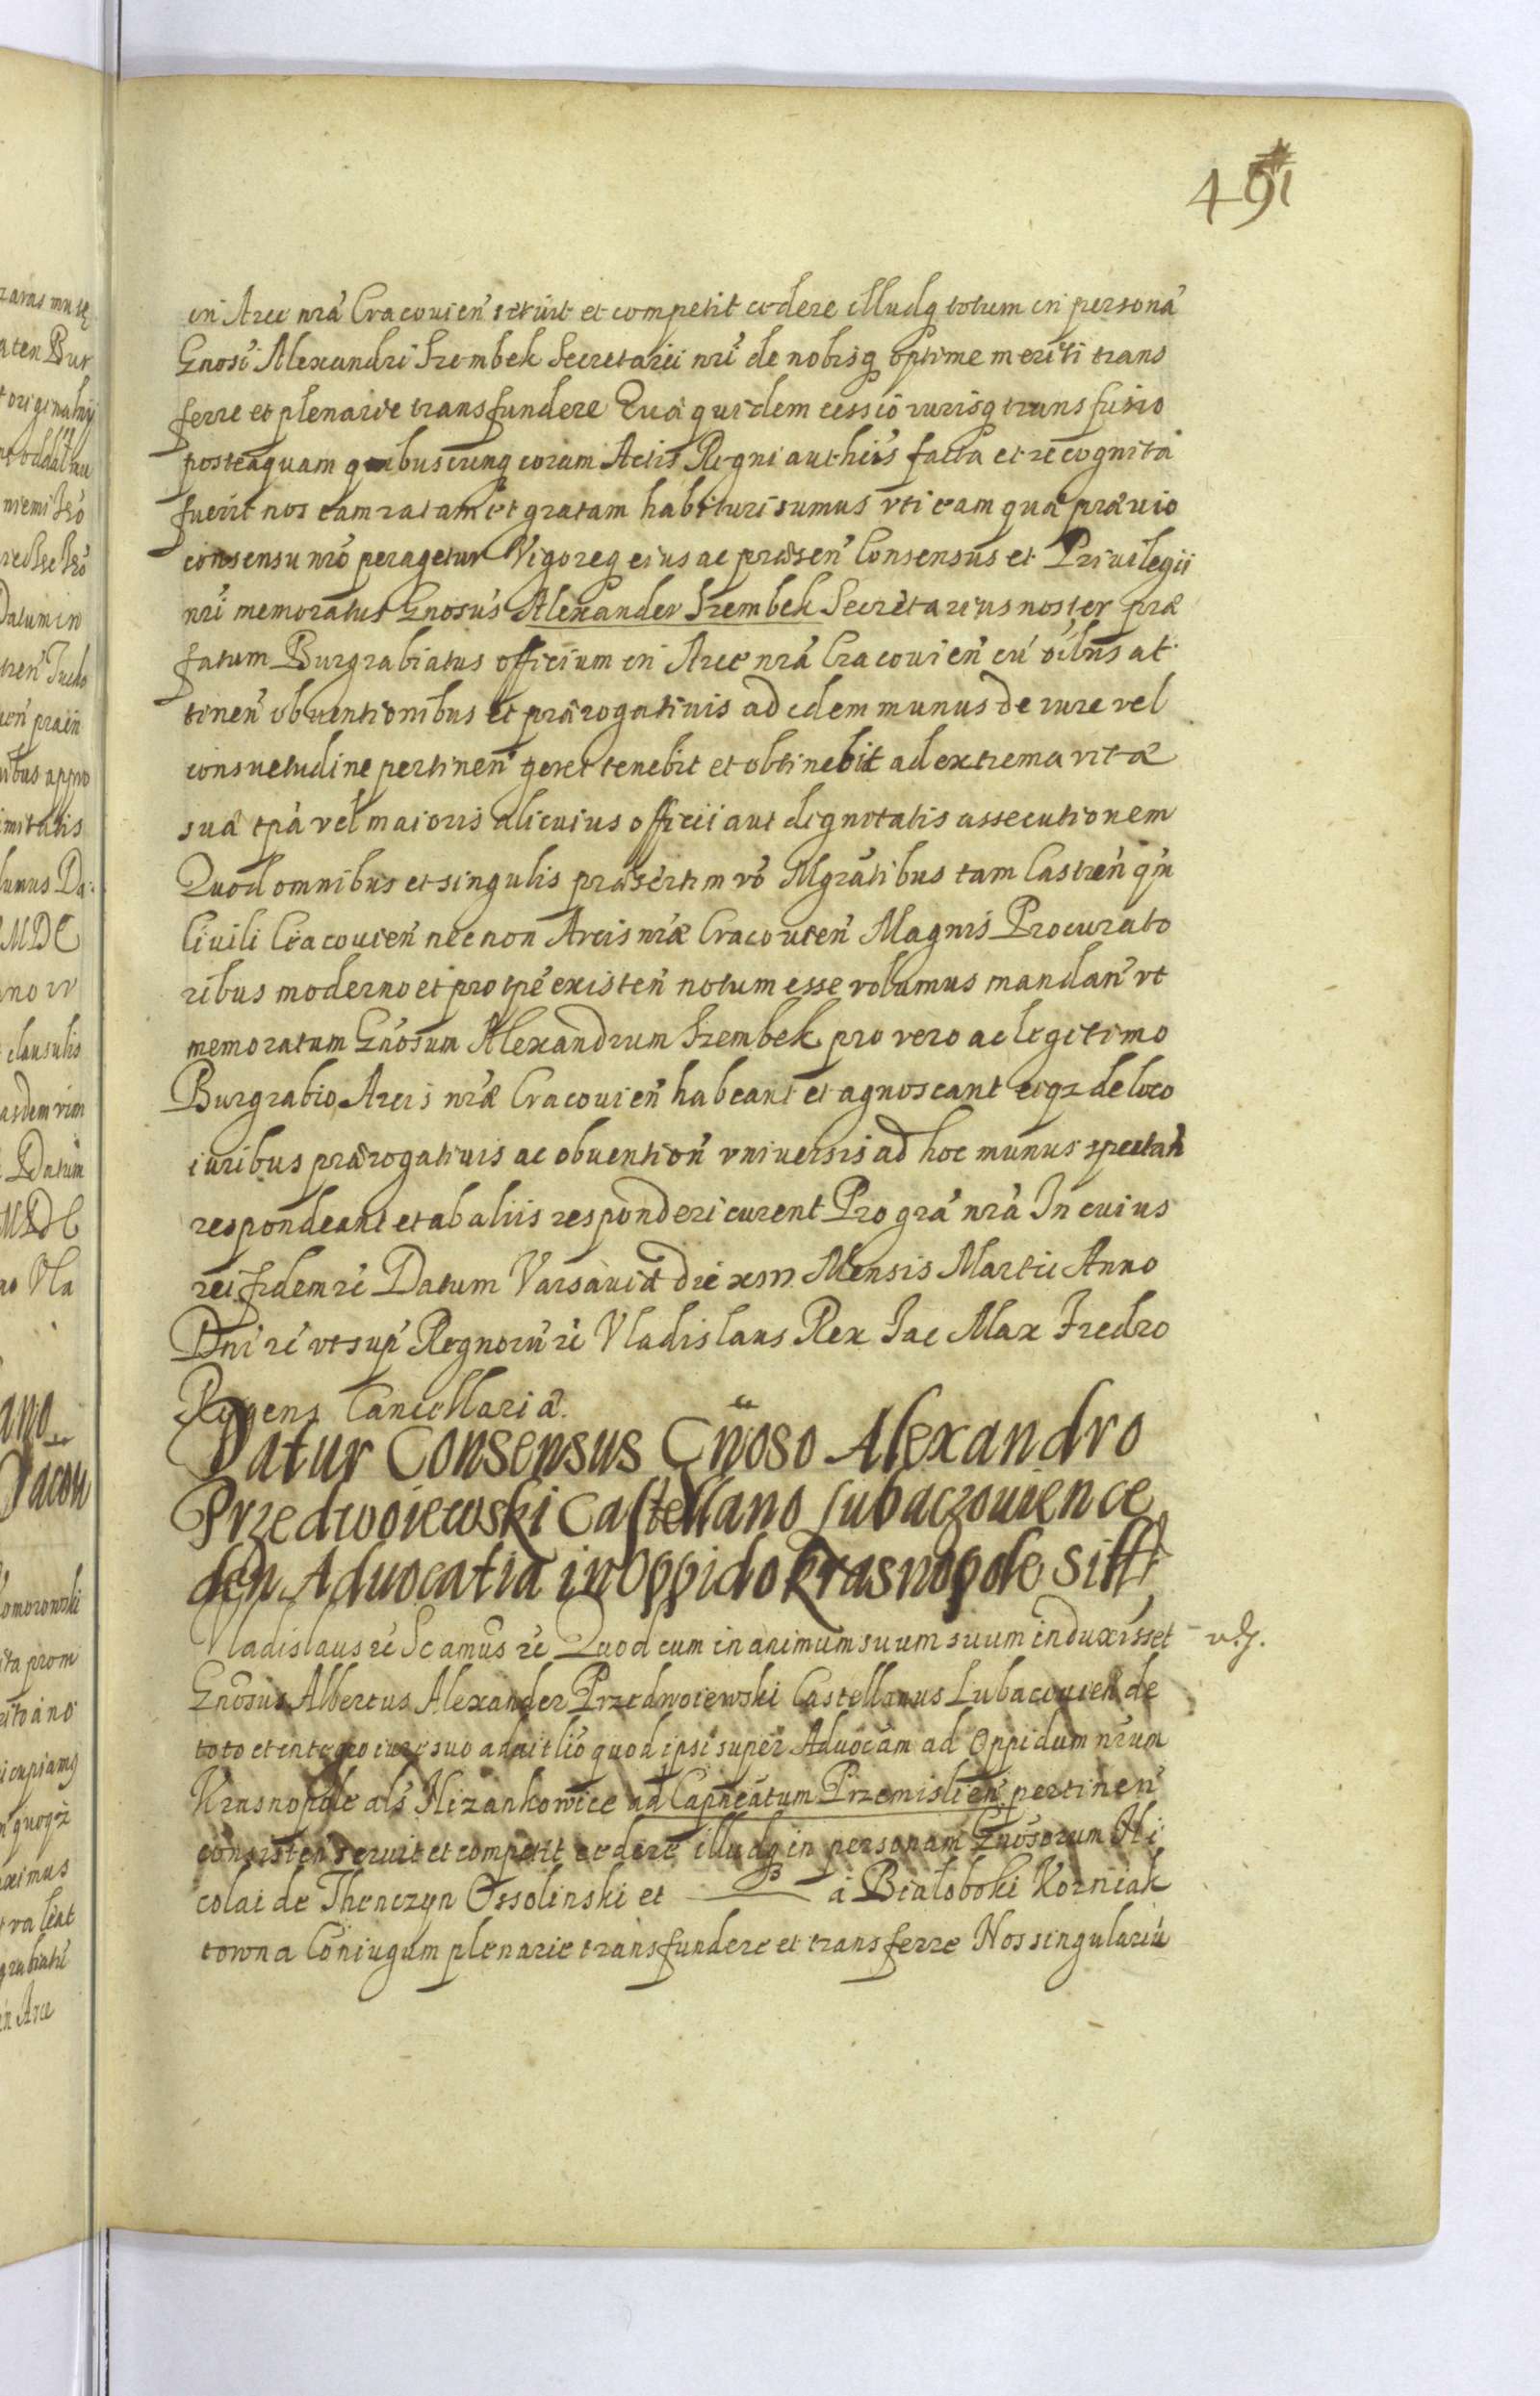 491
in Arce nrã Cracouien̄ seruit et competit cedere illudq̃ totum in personã
Gnosi Alexandri Szembek Secretarii nri de nobisq̃ optime meriti trans
ferre et plenarie transfundere Quã quidem cessio iurisq̃ transfusio
posteaquam quibuscunq̃ coram Actis Regni authcis facta et recognita
fuerit nos eam ratam et gratam habituri sumus vti eam quæ præuio
consensu nrõ peragetur Vigoreq̃ eius ac præsen̄ Consensus et Priuilegii
nri memoratus Gnosus Alexander Szembek Secretarius noster præ
fatum Burgrabiatus officium in Arce nrã Cracouien̄ cũ oĩbus at
tinen̄ obuentionibus et prærogatiuis ad idem munus de iure vel
consuetudine pertinen̄ geret tenebit et obtinebit ad extrema vitæ
suæ tpã vel maioris alicuius officii aut dignitatis assecutionem
Quod omnibus et singulis præsertim vō Mgrãtibus tam Castren̄ q̃m
Ciuili Cracouien̄ nec non Arcis nræ Cracouien̄ Magnis Procurato
ribus moderno et pro tpẽ existen̄ notum esse volumus mandan̄ vt
memoratum Gnosum Alexandrum Szembek pro vero ac legitimo
Burgrabio Arcis nræ Cracouien̄ habeant et agnoscant eiqz de loco
iuribus prærogatiuis ac obuention̄ vniuersis ad hoc munus spectan̄
respondeant et ab aliis responderi curent Pro grã nrã In cuius
rei fidem rẽ Datum Varsauiæ die Mensis Martii Anno
Dni rẽ vt sup̃ Regnorũ rẽ Vladislaus Rex Iac Max Fredro
Regens Cancellariæ.
Datur Consensus Gn̄oso Alexandro
Przedwoiewski Castellano Lubaczouien ce
den Aduocatia in Oppido Krasnopole Sitt
Vladislaus rẽ Scamus rẽ Quod cum in animum suum suum induxisset
Gnosus Albertus Alexander Przedwoiewski Castellanus Lubacouien̄ de
toto et integro iure suo aduitliõ quod ipsi super Aduocãm ad Oppidum nrum
Krasnopole als Nizankowice ad Capneãtum Przemislien̄ pertinen̄
consisten̄ seruit et competit cedere illudq̃ in personam Gnosorum Ni
colai de Thenczyn Ossolinski et a Bialoboki Korniak
towna Coniugum plenarie transfundere et transferre Nos singulariũ